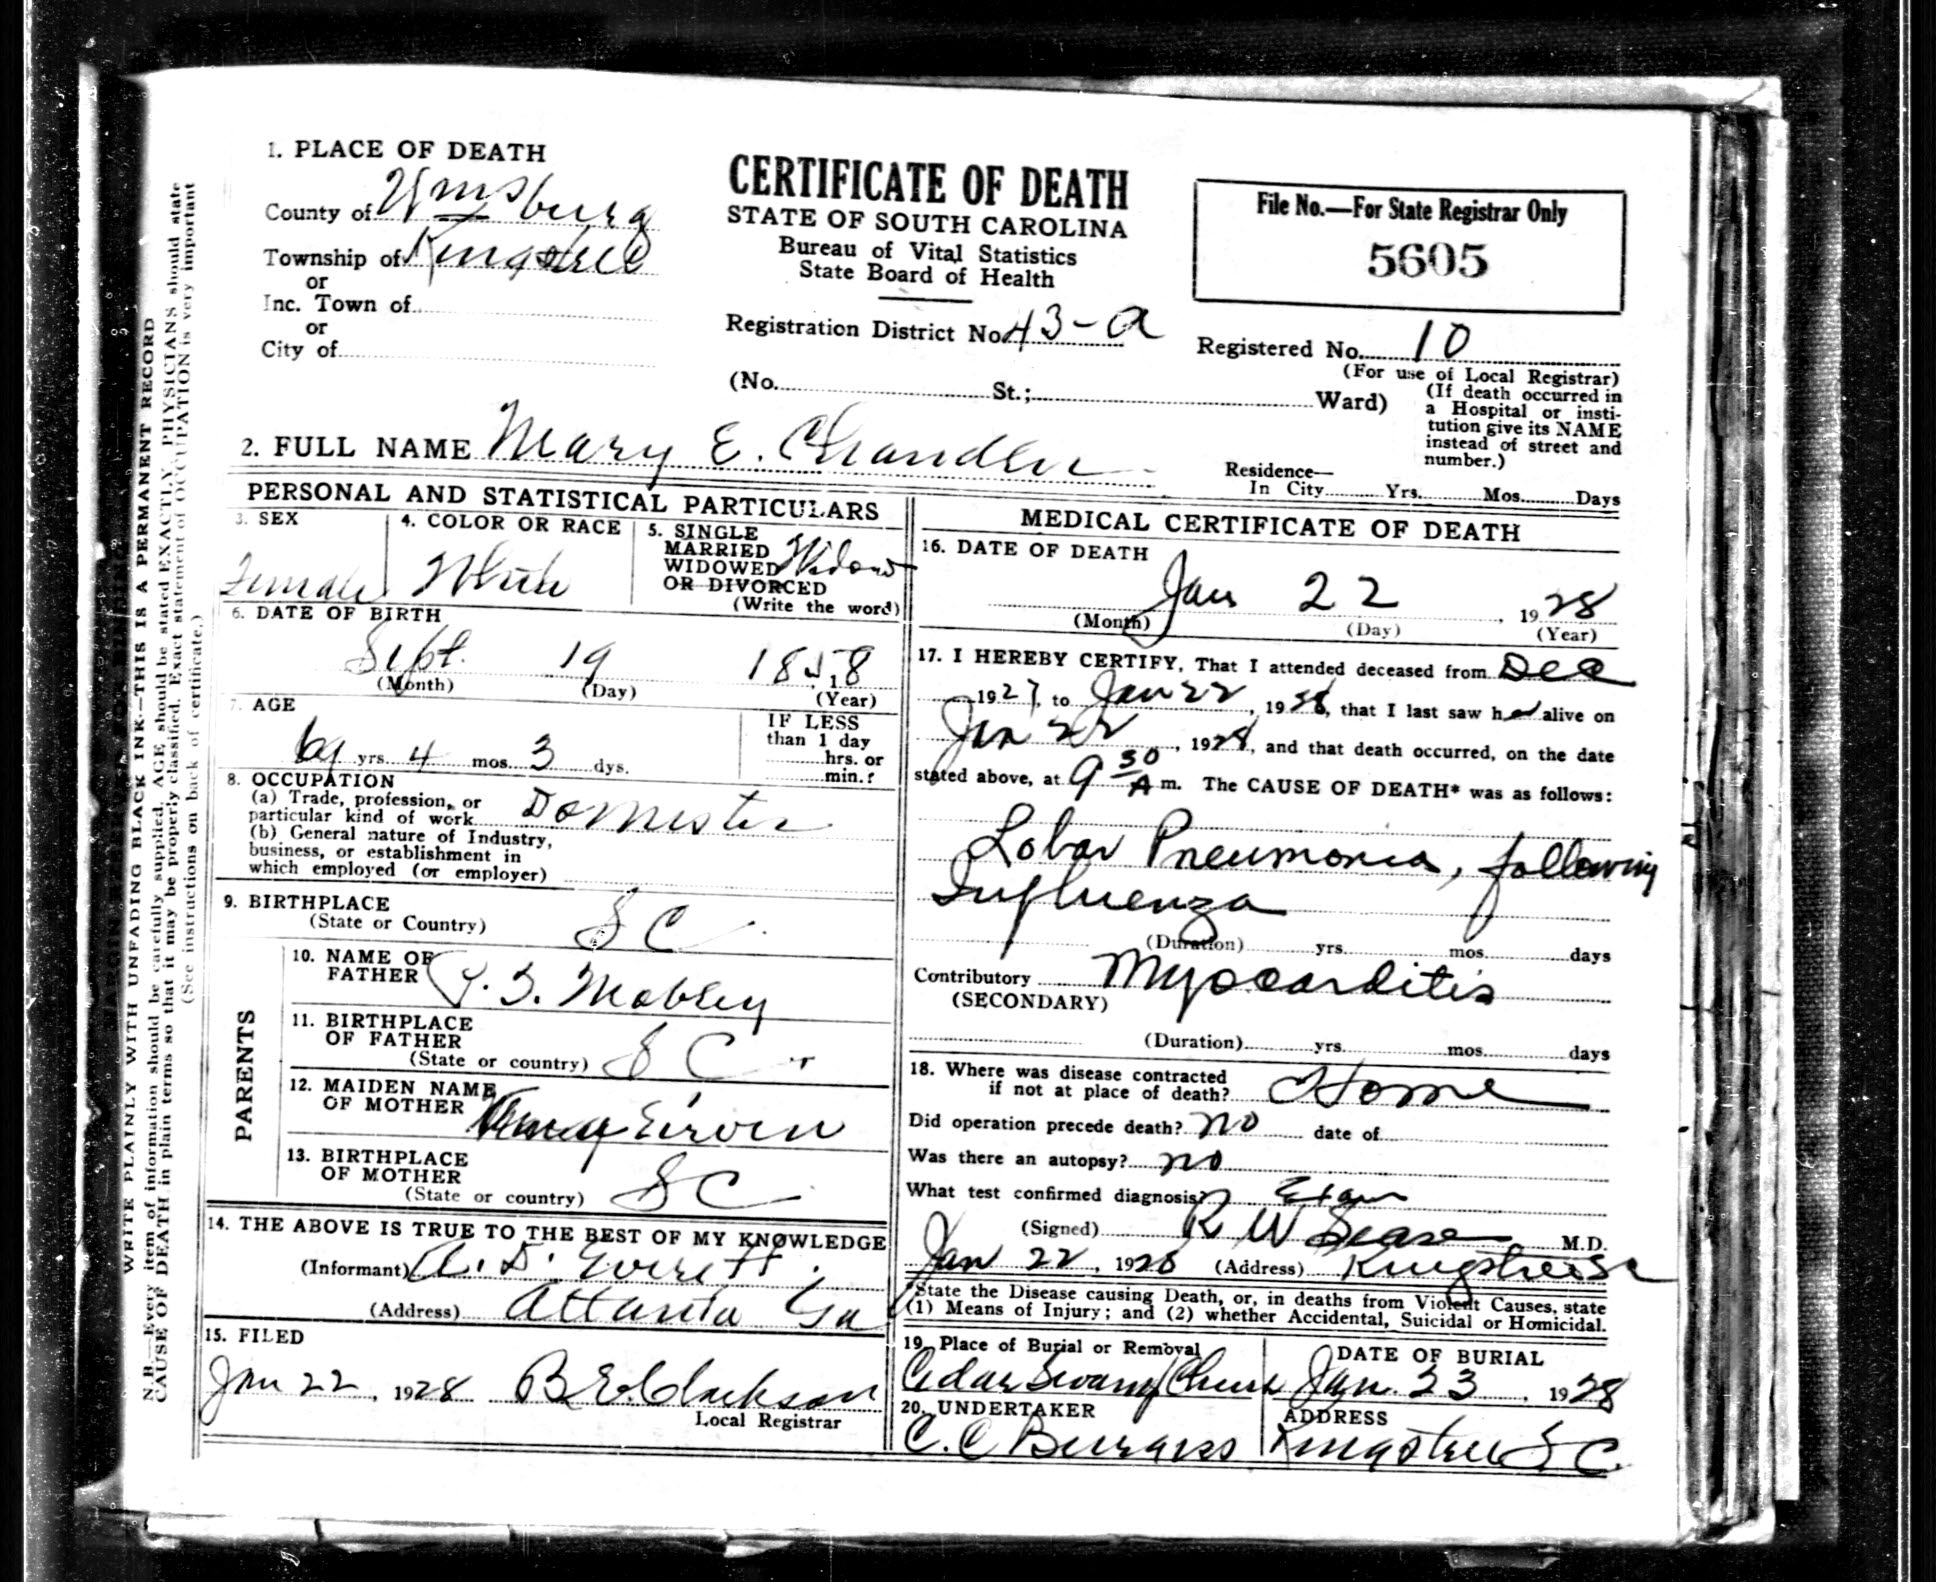 1. PLACE OF DEATH
County of Wmsburg
Township of Kingstree
or
Inc. Town of
or
City of
CERTIFICATE OF DEATH
STATE OF SOUTH CAROLINA
Bureau of Vital Statistics
State Board of Health
Registration District No. 43-a
File No.—For State Registrar Only
5605
Registered No. 10
(For use of Local Registrar)
(No. St.; Ward)
(If death occurred in
a Hospital or insti-
tution give its NAME
instead of street and
number.)
2. FULL NAME Mary E. Chandler
Residence—
In City Yrs. Mos. Days
PERSONAL AND STATISTICAL PARTICULARS
3. SEX
Female
4. COLOR OR RACE
White
5. SINGLE
MARRIED
WIDOWED
OR DIVORCED
Widow
(Write the word)
6. DATE OF BIRTH
Sept. 19 1858
(Month) (Day) (Year)
7. AGE
69 yrs. 4 mos. 3 dys.
IF LESS
than 1 day
hrs. or
min.?
8. OCCUPATION
(a) Trade, profession, or
particular kind of work Domestic
(b) General nature of Industry,
business, or establishment in
which employed (or employer)
9. BIRTHPLACE
(State or Country) S C
PARENTS
10. NAME OF
FATHER Mobley
11. BIRTHPLACE
OF FATHER
(State or country) S C
12. MAIDEN NAME
OF MOTHER Ervin
13. BIRTHPLACE
OF MOTHER
(State or country) S C
14. THE ABOVE IS TRUE TO THE BEST OF MY KNOWLEDGE
(Informant) A. D. Everett
(Address) Atlanta Ga
15. FILED
Jan 22, 1928 B E Clarkson
Local Registrar
MEDICAL CERTIFICATE OF DEATH
16. DATE OF DEATH
Jan 22, 1928
(Month) (Day) (Year)
17. I HEREBY CERTIFY, That I attended deceased from Dec
1927, to Jan 22, 1928, that I last saw her alive on
Jan 22, 1928, and that death occurred, on the date
stated above, at 9 30 A m. The CAUSE OF DEATH* was as follows:
Lobar Pneumonia, following
Influenza
(Duration) yrs. mos. days
Contributory Myocarditis
(SECONDARY)
(Duration) yrs. mos. days
18. Where was disease contracted
if not at place of death? Home
Did operation precede death? no date of
Was there an autopsy? no
What test confirmed diagnosis? Exam
(Signed) R W Sease M.D.
Jan 22, 1928 (Address) Kingstree SC
State the Disease causing Death, or, in deaths from Violent Causes, state
(1) Means of Injury; and (2) whether Accidental, Suicidal or Homicidal.
19. Place of Burial or Removal
Cedar Swamp Church
DATE OF BURIAL
Jan. 23, 1928
20. UNDERTAKER
C. C Burgess
ADDRESS
Kingstree S C.
WRITE PLAINLY WITH UNFADING BLACK INK—THIS IS A PERMANENT RECORD
N. B.—Every item of information should be carefully supplied. AGE should be stated EXACTLY. PHYSICIANS should state
CAUSE OF DEATH in plain terms so that it may be properly classified. Exact statement of OCCUPATION is very important
(See instructions on back of certificate.)